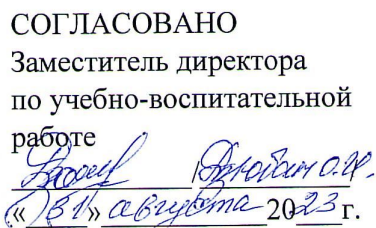 СОГЛАСОВАНО
Заместитель директора
по учебно-воспитательной
работе
/ О.И.
«31» августа 2023 г.